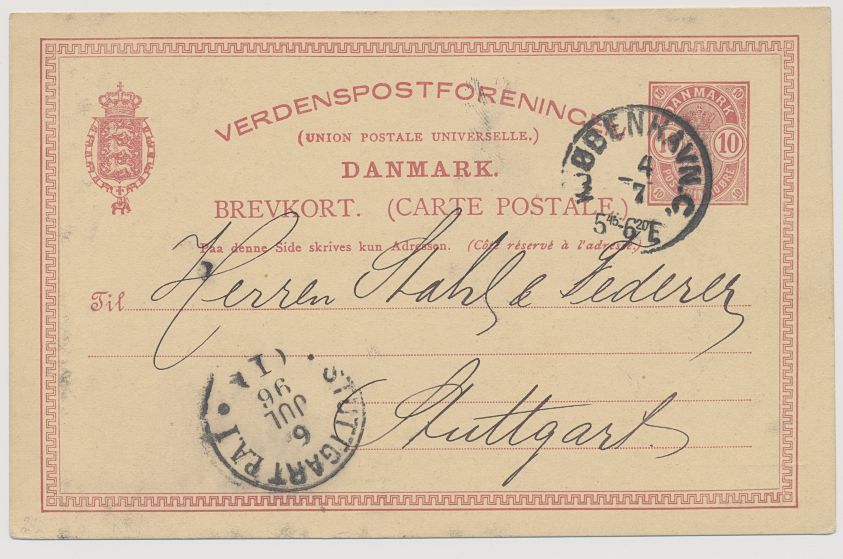 VERDENSPOSTFORENINGEN
(UNION POSTALE UNIVERSELLE.)
DANMARK.
BREVKORT. (CARTE POSTALE.)
Paa denne Side skrives kun Adressen. (Côté réservé à l'adresse.)
DANMARK
10 10
KJØBENHAVN.C.
4
7
5 45-6 20 E
Til Herren Stahl & Federer
Stuttgart.
STUTTGART P.A.I
6
JUL
96